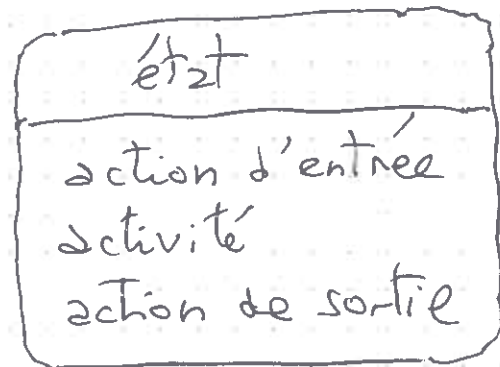 état
action d'entrée
activité
action de sortie